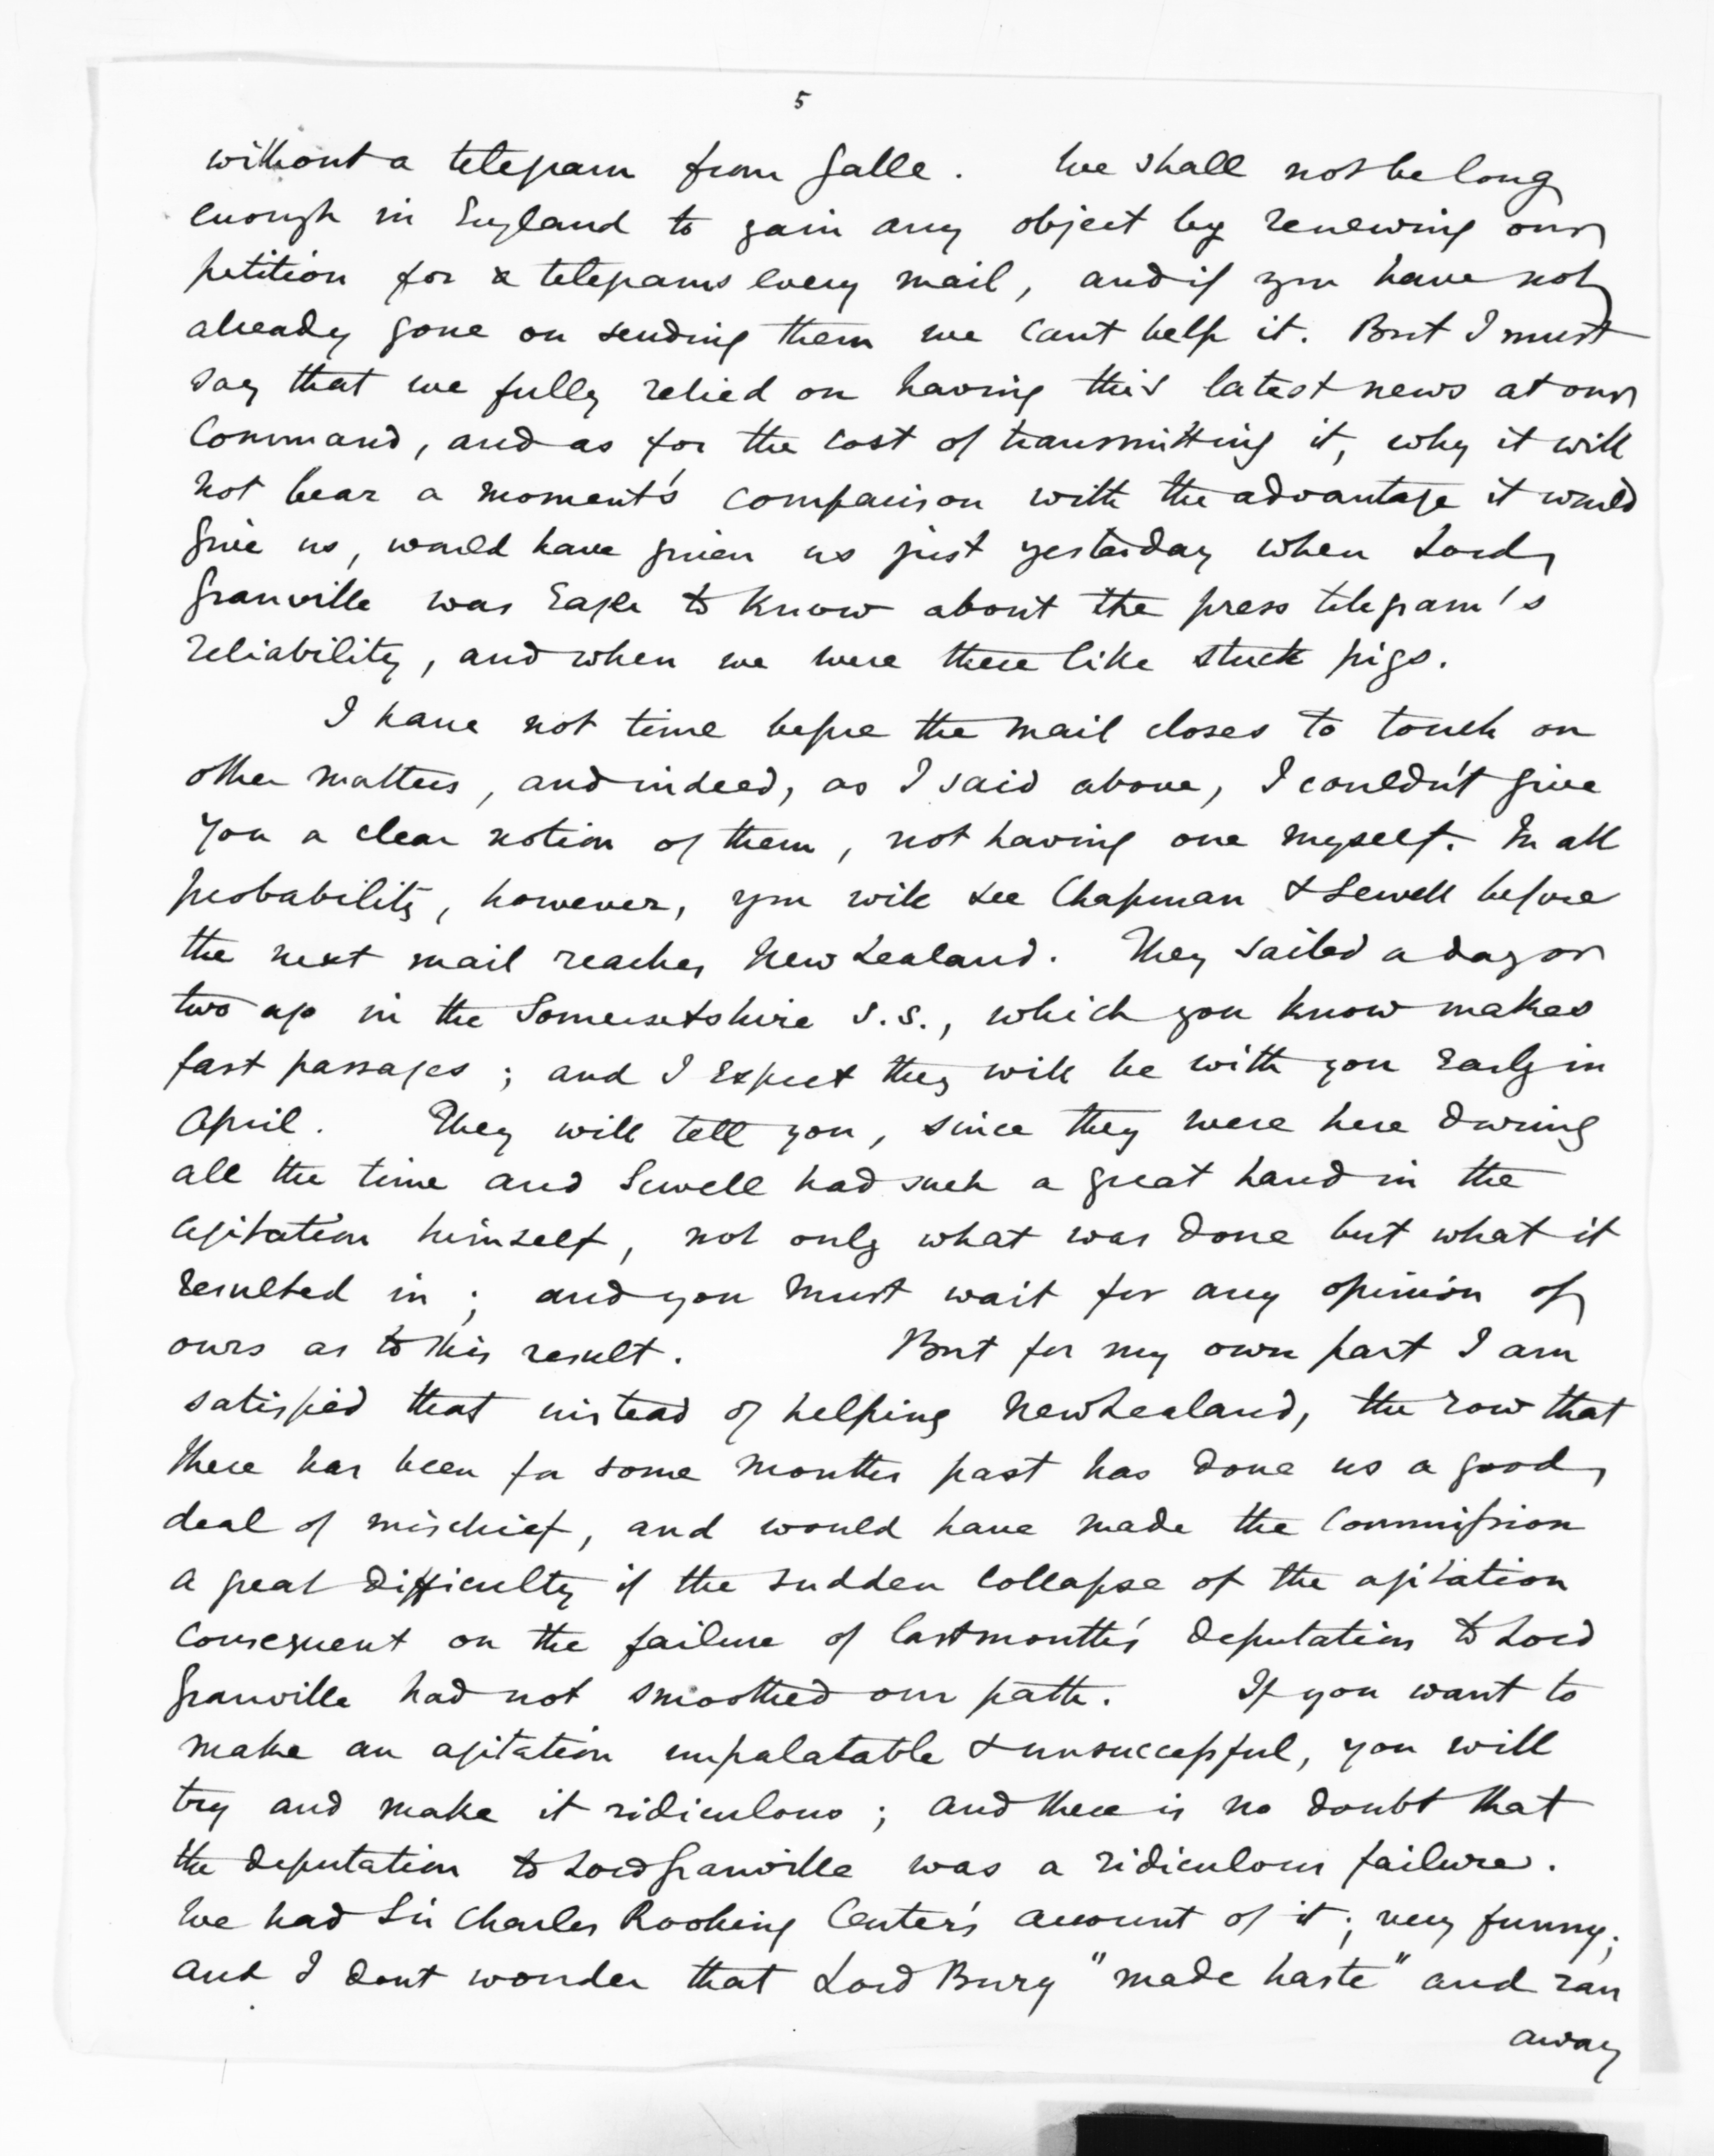 5
without a telegram from Galle. We shall not be long
enough in England to gain any object by renewing our
petition for a telegrams every mail, and if you have not
already gone on sending them we cant help it. But I must
say that we fully relied on having this latest news at our
Command, and as for the cost of transmitting it, why it will
not bear a moment's comparison with the advantage it would
give us, would have given us just yesterday when Lord
Granville was Eager to know about the press telegram's
reliability, and when we were there like stuck pigs.
I have not time before the mail closes to touch on
other matters, and indeed, as I said above, I couldn't give
you a clear notion of them, not having one myself. In all
probability, however, you will see Chapman & Sewell before
the next mail reaches New Zealand. They sailed a day or
two ago in the Somersetshire S.S., which you know makes
fast passages; and I Expect they will be with you Early in
April. They will tell you, since they were here during
all the time and Sewell had such a great hand in the
agitation himself, not only what was done but what it
resulted in; and you must wait for any opinion of
ours as to this result. But for my own part I am
satisfied that instead of helping New Zealand, the row that
there has been for some months past has done us a good
deal of mischief, and would have made the Commission
a great difficulty if the sudden collapse of the agitation
consequent on the failure of last month's deputation to Lord
Granville had not smoothed our path. If you want to
make an agitation unpalatable & unsuccessful, you will
try and make it ridiculous; and there is no doubt that
the deputation to Lord Granville was a ridiculous failure.
We had Sir Charles Rooking Carter's account of it; very funny;
and I dont wonder that Lord Bury "made haste" and ran
away